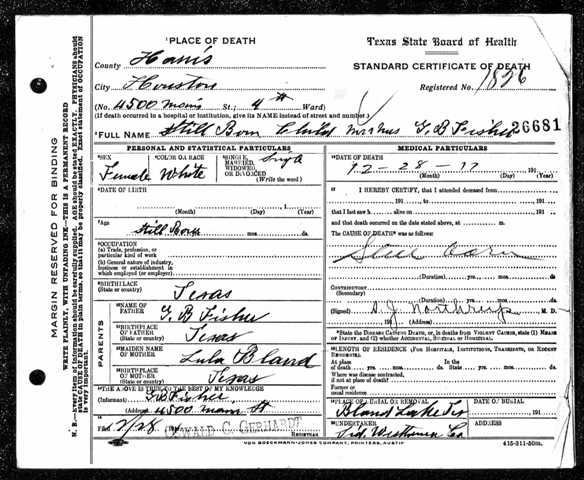 PLACE OF DEATH
County Harris
City Houston
(No. 4500 Main St.; 4th Ward)
(If death occurred in a hospital or institution, give its NAME instead of street and number)
Texas State Board of Health
STANDARD CERTIFICATE OF DEATH
Registered No. 1826
*FULL NAME Still Born Child Mr & Mrs G. B. Fisher 26681
MARGIN RESERVED FOR BINDING
WRITE PLAINLY, WITH UNFADING INK—THIS IS A PERMANENT RECORD
N. B.—Every item of information should be carefully supplied. AGE should be stated EXACTLY. PHYSICIANS should state CAUSE OF DEATH in plain terms, so that it may be properly classified. Exact statement of OCCUPATION is very important.
PERSONAL AND STATISTICAL PARTICULARS
*SEX Female
*COLOR OR RACE White
*SINGLE, MARRIED, WIDOWED, OR DIVORCED (Write the word) Single
*DATE OF BIRTH
(Month) (Day) (Year)
*Age Still Born mos. ds.
*OCCUPATION
(a) Trade, profession, or particular kind of work
(b) General nature of industry, business or establishment in which employed (or employer)
*BIRTHPLACE
(State or country) Texas
PARENTS
*NAME OF FATHER G. B. Fisher
*BIRTHPLACE OF FATHER Texas
*MAIDEN NAME OF MOTHER Lula Bland
*BIRTHPLACE OF MOTHER Texas
*THE ABOVE IS TRUE TO THE BEST OF MY KNOWLEDGE
(Informant) G. B. Fisher
(Address) 4500 Main St
Filed 2/28 191 OSWALD C. GERHARDT
REGISTRAR
MEDICAL PARTICULARS
*DATE OF DEATH
12-28-17 191
(Month) (Day) (Year)
I HEREBY CERTIFY, that I attended deceased from
191 to 191
that I last saw h alive on 191
and that death occurred on the date stated above, at m.
The CAUSE OF DEATH* was as follows:
Still Born
(Duration) yrs. mos. ds.
CONTRIBUTORY
(Secondary)
(Duration) yrs. mos. ds.
(Signed) Northrup M. D.
191 (Address)
*State the DISEASE CAUSING DEATH, or, in deaths from VIOLENT CAUSES, state (1) MEANS OF INJURY, and (2) whether ACCIDENTAL, SUICIDAL or HOMICIDAL
*LENGTH OF RESIDENCE (FOR HOSPITALS, INSTITUTIONS, TRANSIENTS, OR RECENT RESIDENTS)
At place of death yrs. mos. ds. State yrs. mos. ds.
Where was disease contracted, if not at place of death?
Former or usual residence
*PLACE OF BURIAL OR REMOVAL Bland Lake Tex
DATE OF BURIAL 191
*UNDERTAKER Sid Westheimer Co
ADDRESS
VON BOECKMANN-JONES COMPANY, PRINTERS, AUSTIN
415-311-50m.